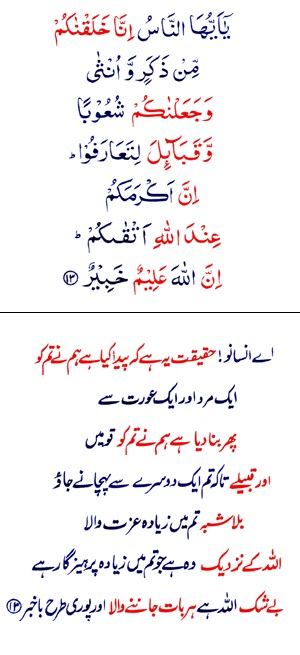 يٰٓاَيُّهَا النَّاسُ اِنَّا خَلَقْنٰكُمْ
مِّنْ ذَكَرٍ وَّ اُنْثٰى
وَجَعَلْنٰكُمْ شُعُوْبًا
وَّقَبَآئِلَ لِتَعَارَفُوْا ؕ
اِنَّ اَكْرَمَكُمْ
عِنْدَ اللّٰهِ اَتْقٰىكُمْ ؕ
اِنَّ اللّٰهَ عَلِيْمٌ خَبِيْرٌ ﴿۱۳﴾
اے انسانو! حقیقت یہ ہے کہ پیدا کیا ہے ہم نے تم کو
ایک مرد اور ایک عورت سے
پھر بنا دیا ہے ہم نے تم کو قومیں
اور قبیلے تاکہ تم ایک دوسرے سے پہچانے جاؤ
بلاشبہ تم میں زیادہ عزت والا
اللہ کے نزدیک وہ ہے جو تم میں زیادہ پرہیزگار ہے
بے شک اللہ ہے ہر بات جاننے والا اور پوری طرح باخبر ﴿۱۳﴾